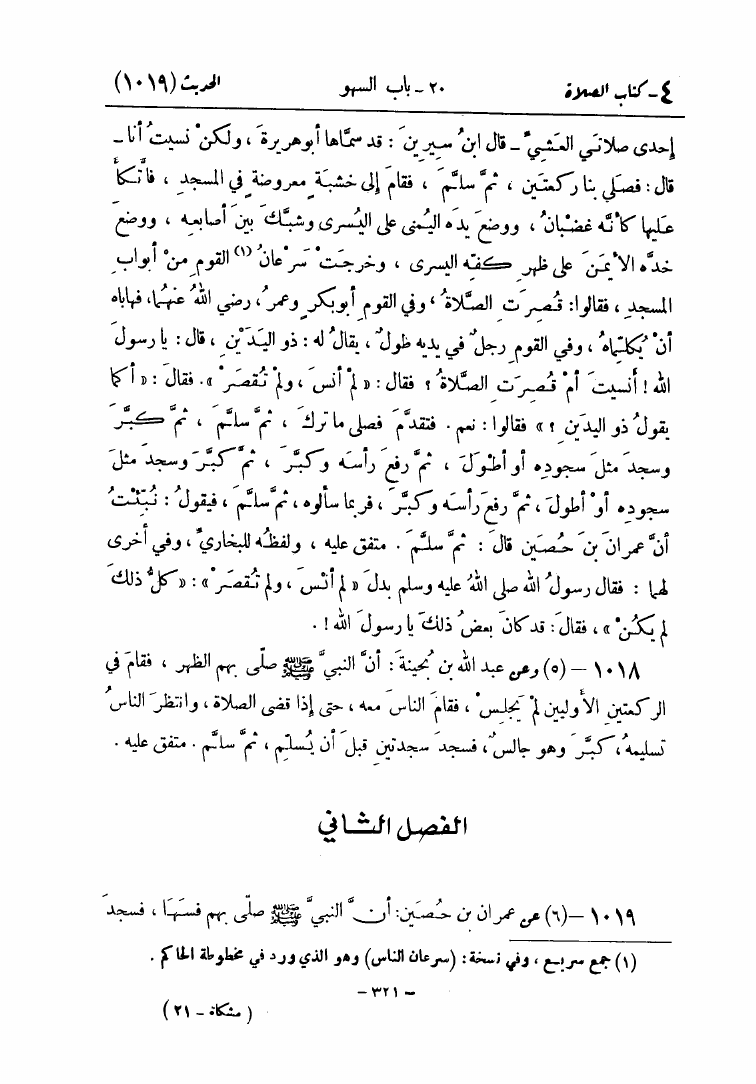 ٤ - كتاب الصلاة ٢٠ - باب السهو الحديث (١٠١٩)
إحدى صلاتي العَشيِّ - قال ابنُ سيرينَ : قد سمَّاها أبو هريرةَ ، ولكنْ نسيتُ أنا -
قال : فصلَّى بنا ركعتَين ، ثمَّ سلَّمَ ، فقامَ إلى خشبةٍ معروضةٍ في المسجدِ ، فاتَّكأَ
عليها كأنَّه غضبانُ ، ووضعَ يدَه اليُمنى على اليُسرى وشبَّكَ بينَ أصابعِه ، ووضعَ
خدَّه الأيمنَ على ظهرِ كفِّه اليسرى ، وخرجَتْ سَرْعانُ (١) القومِ منْ أبوابِ
المسجدِ ، فقالوا : قُصِرَتِ الصَّلاةُ ، وفي القومِ أبو بكرٍ وعمرُ ، رضي اللهُ عنهُما ، فهاباه
أنْ يُكلِّماهُ ، وفي القومِ رجلٌ في يديه طولٌ ، يقالُ له : ذو اليَدَيْنِ ، قال : يا رسولَ
الله ! أنسيتَ أمْ قُصِرَتِ الصَّلاةُ ؟ فقال : « لمْ أنسَ ، ولمْ تُقصَرْ » . فقالَ : « أكما
يقولُ ذو اليدَينِ ؟ » فقالوا : نعم . فتقدَّمَ فصلى ما تركَ ، ثمَّ سلَّمَ ، ثمَّ كبَّرَ
وسجدَ مثلَ سجودِه أو أطولَ ، ثمَّ رفعَ رأسَه وكبَّرَ ، ثمَّ كبَّرَ وسجدَ مثلَ
سجودِه أوْ أطولَ ، ثمَّ رفعَ رأسَه وكبَّرَ ، فربما سألوه ، ثمَّ سلَّمَ ، فيقولُ : نُبِّئْتُ
أنَّ عمرانَ بنَ حُصَينٍ قالَ : ثمَّ سلَّمَ . متفق عليه ، ولفظُه للبخاريِّ ، وفي أخرى
لهما : فقال رسولُ الله صلى اللهُ عليه وسلم بدلَ « لم أنْسَ ، ولم تُقصَرْ » : « كلُّ ذلكَ
لم يكُنْ » ، فقالَ : قد كانَ بعضُ ذلكَ يا رسولَ الله ! .
١٠١٨ - (٥) وعن عبد الله بن بُحَينةَ : أنَّ النبيَّ ﷺ صلّى بهم الظهر ، فقامَ في
الركعتينِ الأُولَيينِ لمْ يَجلِسْ ، فقامَ الناسُ معه ، حتى إذا قضى الصلاةَ ، وانتظرَ الناسُ
تسليمَهُ ، كبَّرَ وهو جالسٌ ، فسجدَ سجدتينِ قبلَ أن يُسلِّمَ ، ثمَّ سلَّم . متفق عليه .
الفصل الثاني
١٠١٩ - (٦) عن عمران بن حُصَين : أنَّ النبيَّ ﷺ صلّى بهم فسَهَا ، فسجدَ
(١) جمع سريع ، وفي نسخة : (سرعان الناس) وهو الذي ورد في مخطوطة الحاكم .
- ٣٢١ -
( مشكاة - ٢١ )